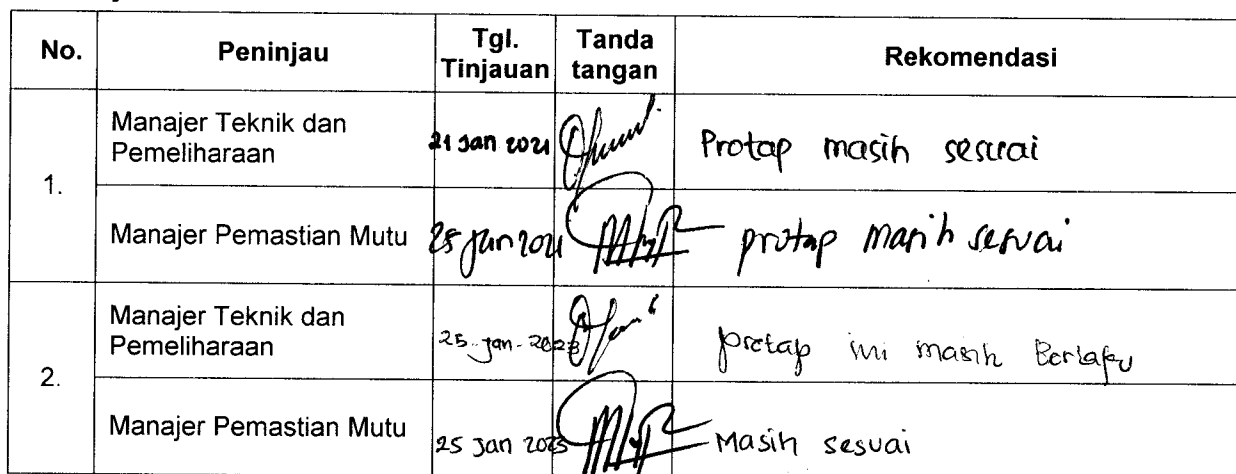 No. Peninjau Tgl. Tinjauan Tanda tangan Rekomendasi
1. Manajer Teknik dan Pemeliharaan 21 Jan 2021 Protap masih sesuai
Manajer Pemastian Mutu 25 Jan 2021 protap masih sesuai
2. Manajer Teknik dan Pemeliharaan 25-Jan-2023 protap ini masih Berlaku
Manajer Pemastian Mutu 25 Jan Masih sesuai